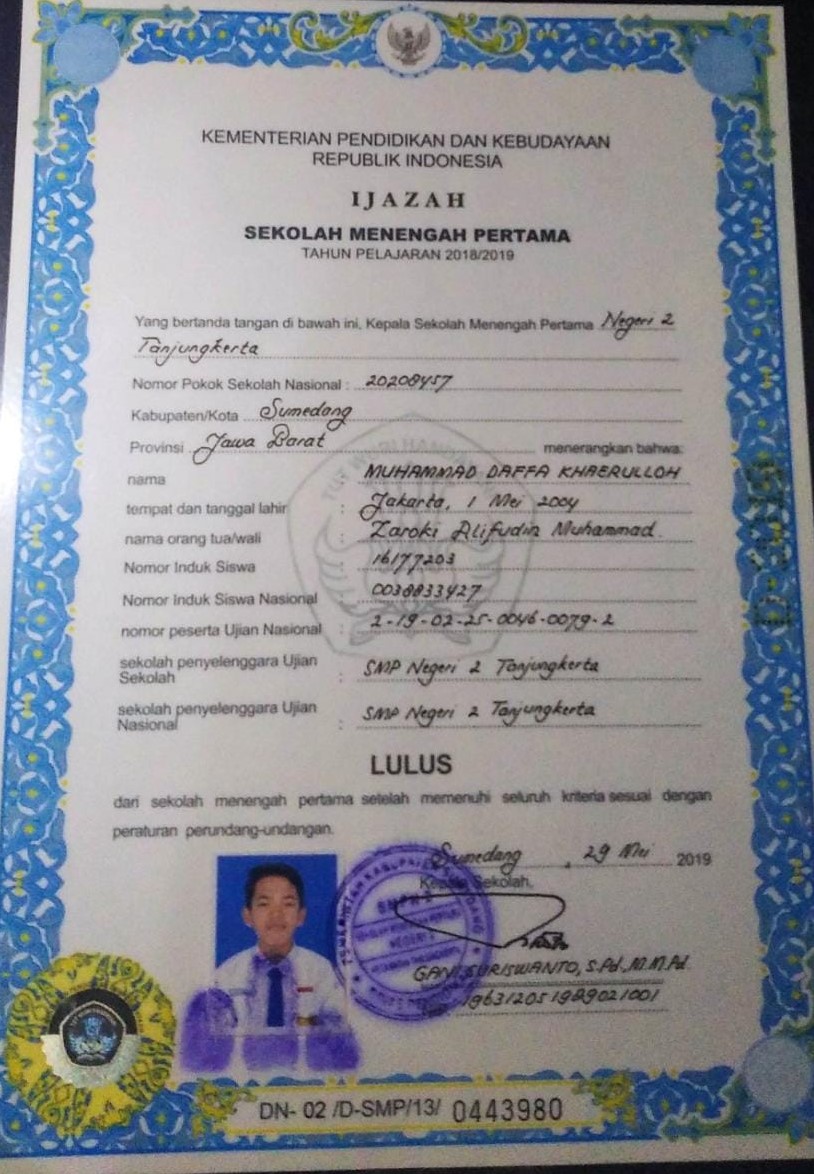 KEMENTERIAN PENDIDIKAN DAN KEBUDAYAAN
REPUBLIK INDONESIA
IJAZAH
SEKOLAH MENENGAH PERTAMA
TAHUN PELAJARAN 2018/2019
Yang bertanda tangan di bawah ini, Kepala Sekolah Menengah Pertama Negeri 2
Tanjungkerta
Nomor Pokok Sekolah Nasional : 20208457
Kabupaten/Kota Sumedang
Provinsi Jawa Barat menerangkan bahwa:
nama MUHAMMAD DAFFA KHAERULLOH
tempat dan tanggal lahir : Jakarta, 1 Mei 2004
nama orang tua/wali : Zaroki Alifudin Muhammad
Nomor Induk Siswa : 16177203
Nomor Induk Siswa Nasional : 0038833427
nomor peserta Ujian Nasional : 2-19-02-25-0046-0079-2
sekolah penyelenggara Ujian
Sekolah : SMP Negeri 2 Tanjungkerta
sekolah penyelenggara Ujian
Nasional : SMP Negeri 2 Tanjungkerta
LULUS
dari sekolah menengah pertama setelah memenuhi seluruh kriteria sesuai dengan
peraturan perundang-undangan.
Sumedang, 29 Mei 2019
Kepala Sekolah,
GANI SURISWANTO, S.Pd., M.M.Pd.
196312051989021001
DN- 02 /D-SMP/13/ 0443980